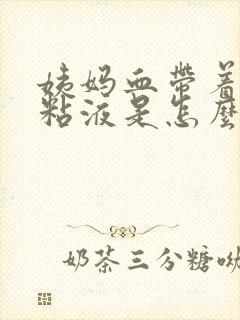 姨妈血带着
粘液是怎麽
奶茶三分糖呦